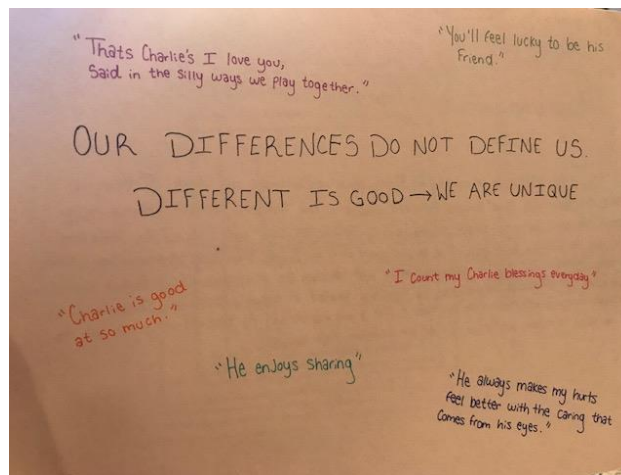 "Thats Charlie's I love you,
Said in the silly ways we play together."
"You'll feel lucky to be his
friend."
OUR DIFFERENCES DO NOT DEFINE US.
DIFFERENT IS GOOD → WE ARE UNIQUE
"I count my Charlie blessings everyday"
"Charlie is good
at so much."
"He enjoys sharing"
"He always makes my hurts
feel better with the caring that
comes from his eyes."